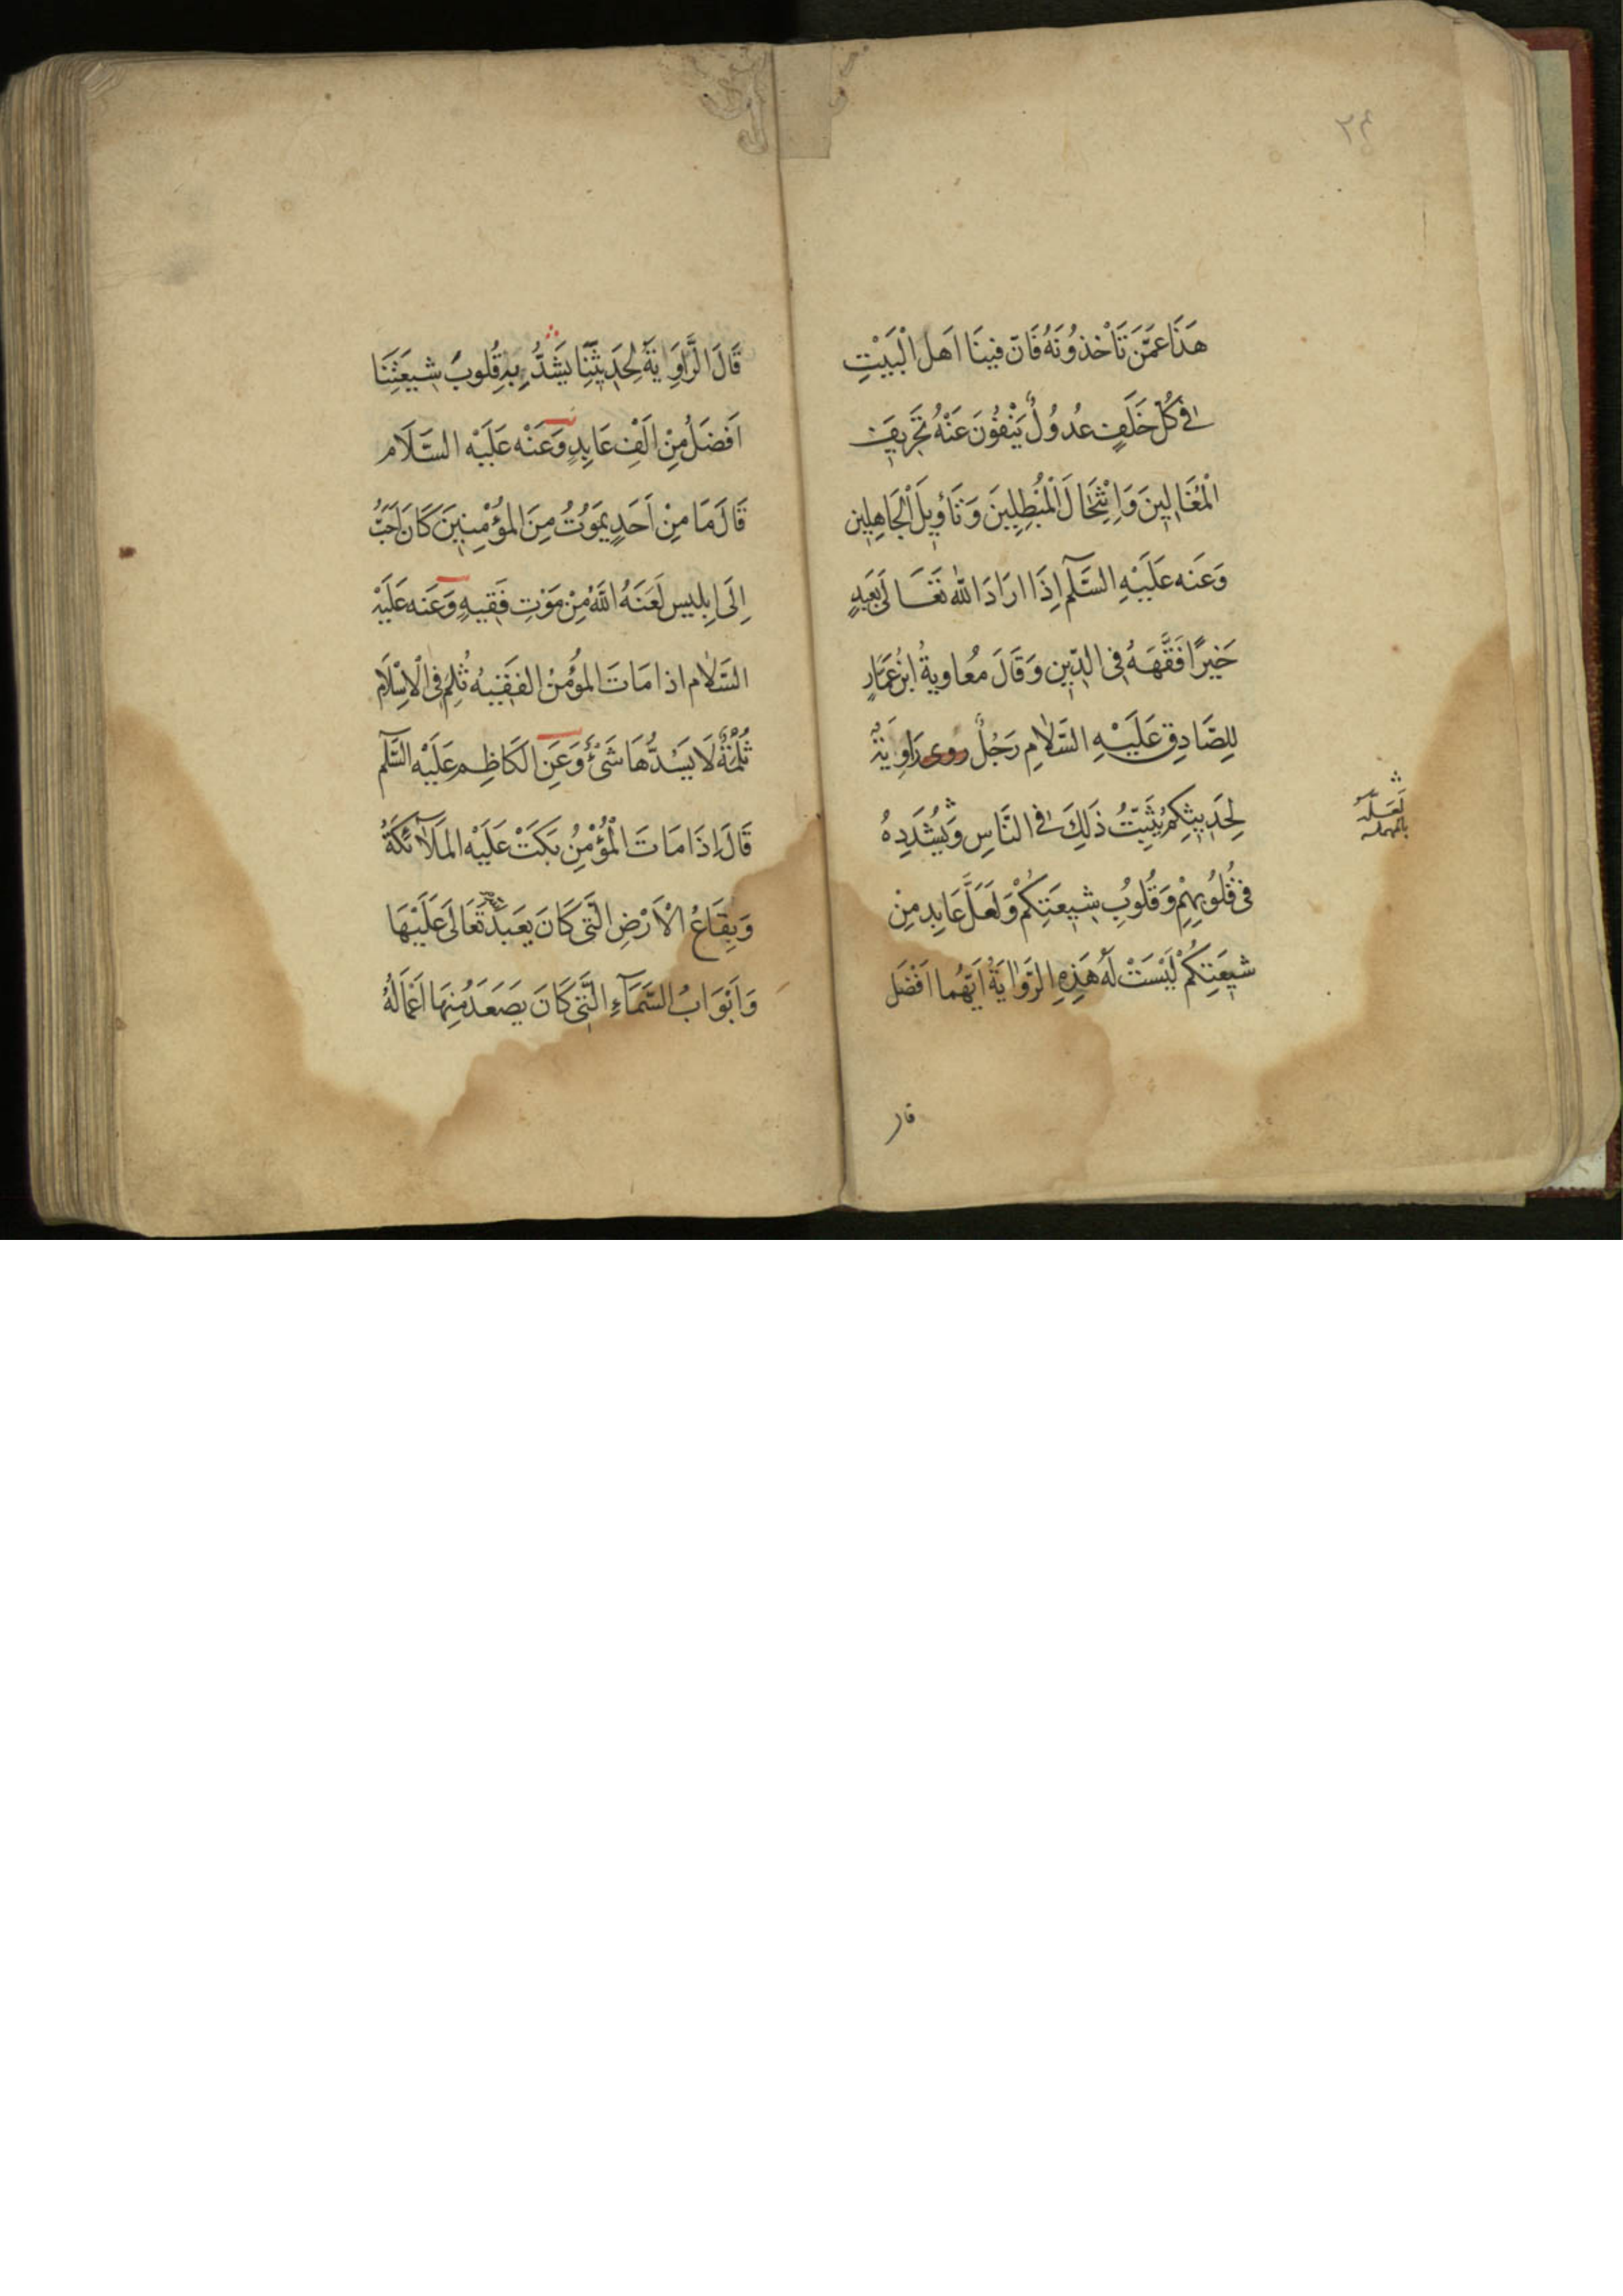 ٢٤
هَذَا عَمَّنْ تَأْخُذُونَهُ فَانّ فِينَا اَهل الْبَيْتِ
فى كُلِّ خَلَفٍ عُدُولٌ يَنْفُونَ عَنْهُ تَحْرِيفَ
الْمُغَالِينَ وَاِنْتِحَالَ الْمُبْطِلِينَ وَتَأْوِيلَ الْجَاهِلِين
وَعَنه عَلَيْهِ السَّلَم اِذَا ارَادَ اللّه تَعَالَى بِعَبدٍ
خَيرًا فَقَّهَهُ فِى الدِّينِ وَقَالَ مُعاوِيةُ ابنُ عَمَّارٍ
لِلصَّادِقِ عَلَيْهِ السَّلامِ رَجُلٌ روى رَاوِيَةٌ
لِحَدِيثِكِمُ يُثَبِّتُ ذَلِكَ فى النَّاسِ وَيُشَدِدهُ
فى قُلُوبِهِمْ وَقُلُوبِ شِيعَتِكُمْ وَلَعَلَّ عَابِد مِنْ
شيعَتِكُمْ لَيْسَتْ لَهُ هَذِهِ الرَّوَايَةُ اَيّهُما اَفْضَل
لَعَلّهُ
بالمهمله
قال
قَالَ الرَّاوَايَةُ لِحَدِيثِنَا يَشُدُّ بِهِ قُلوبَ شِيعَتِنَا
اَفضَلُ مِنْ اَلْفِ عَابِدٍ وَعَنْه عَلَيْه السَّلَام
قَالَ مَا مِنْ اَحَدٍ يَمَوُتُ مِنَ المؤْمِنِينَ كَانَ اَحَبُّ
اِلَى اِبليس لَعَنَهُ اللَّهُ مِنْ مَوْتِ فَقِيهٍ وَعَنه عَلَيْهِ
السَّلَام اذا مَاتَ المؤُمنُ الفَقِيهُ ثُلِمُ فِى الْاِسْلَامِ
ثُلْمَةٌ لَا يَسُدُّهَا شَىْءٌ وَعَنِ الكَاظِمِ عَلَيْه السَّلَم
قَالَ اِذَا مَاتَ الْمُؤْمِنُ بَكَتْ عَلَيْه المَلَآئكَةُ
وَبِقَاعُ الْاَرْضِ الَّتى كَانَ يَعبدُ تَعَالَى عَلَيْهَا
وَاَبْوَابُ السَّمَآءِ الَّتى كَانَ يصَعَدُ مِنهَا اَعْمَالُهُ